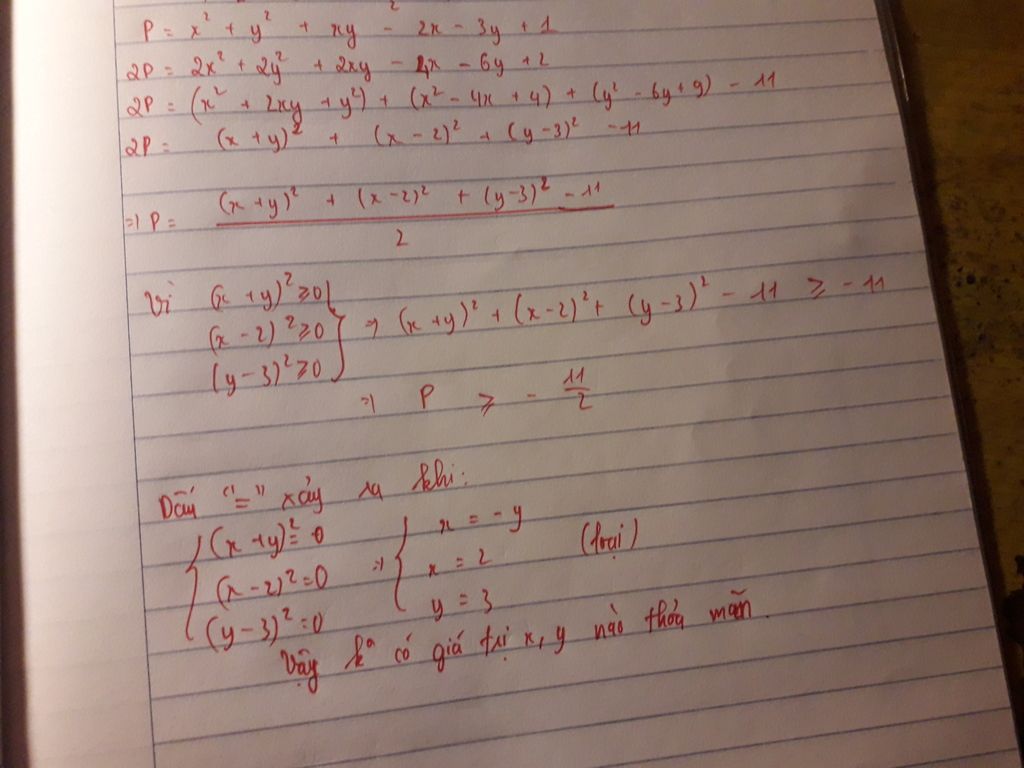 P = x² + y² + xy - 2x - 3y + 1
2P = 2x² + 2y² + 2xy - 4x - 6y + 2
2P = (x² + 2xy + y²) + (x² - 4x + 4) + (y² - 6y + 9) - 11
2P = (x + y)² + (x - 2)² + (y - 3)² - 11
=> P = ((x + y)² + (x - 2)² + (y - 3)² - 11) / 2
Vì (x + y)² ≥ 0
(x - 2)² ≥ 0 } => (x + y)² + (x - 2)² + (y - 3)² - 11 ≥ - 11
(y - 3)² ≥ 0
=> P ≥ - 11/2
Dấu "=" xảy ra khi:
{ (x + y)² = 0 => { x = - y
(x - 2)² = 0 x = 2 (loại)
(y - 3)² = 0 y = 3
Vậy k° có giá trị x, y nào thỏa mãn.